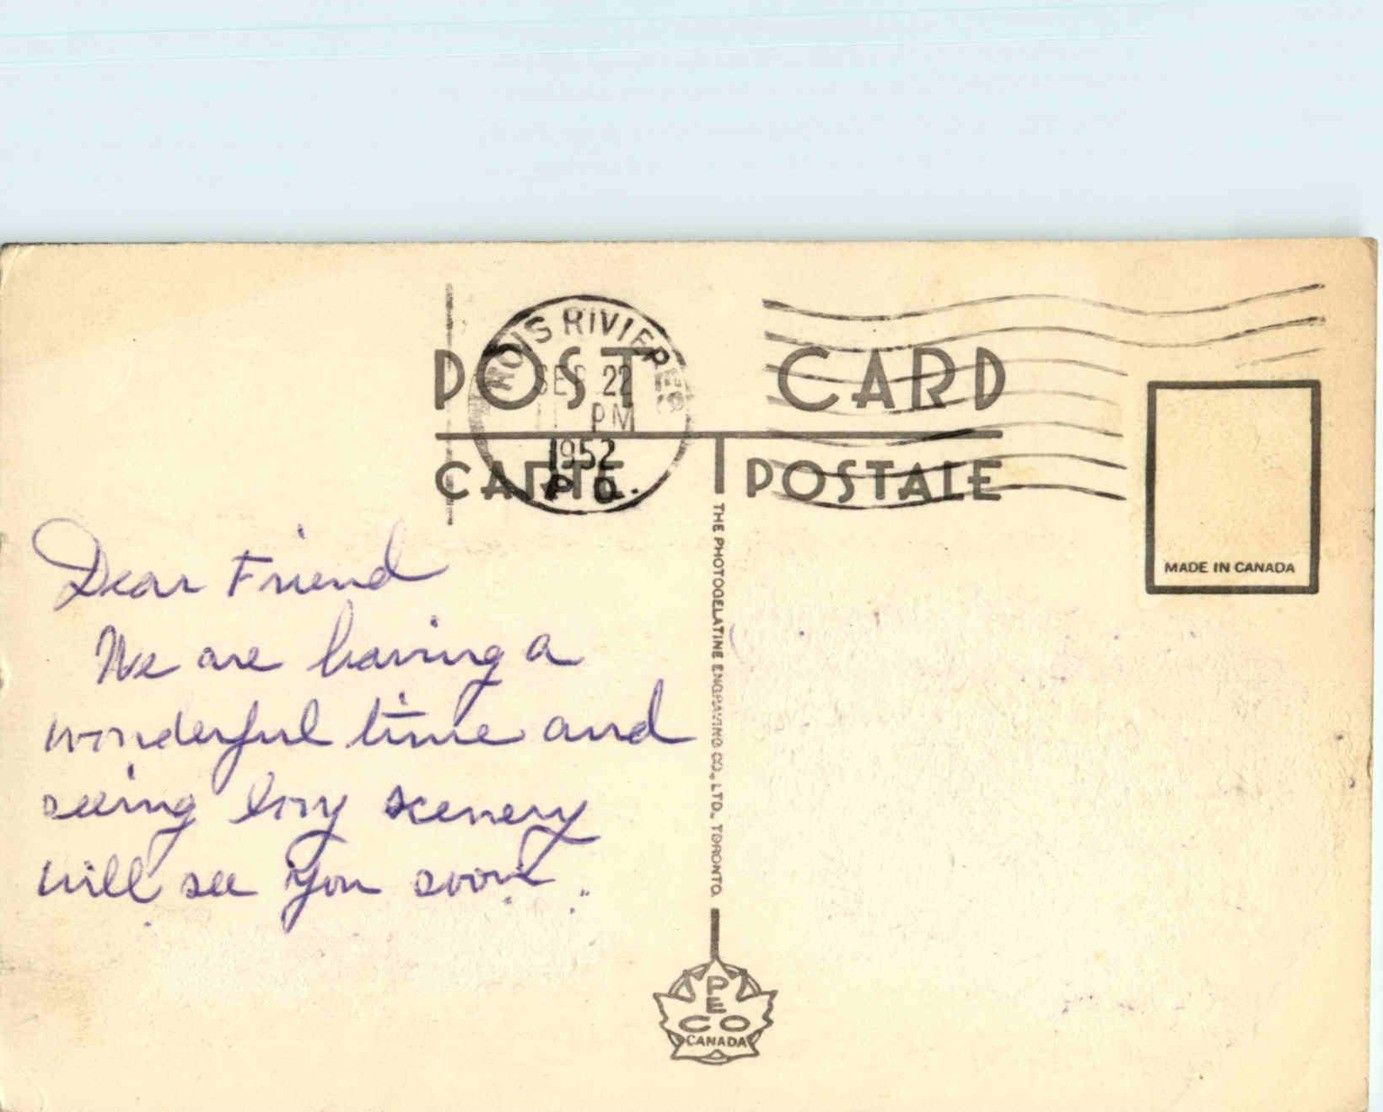 POST CARD
CARTE POSTALE
TROIS RIVIERES
SEP 22
PM
1952
P.Q.
MADE IN CANADA
THE PHOTOGELATINE ENGRAVING CO., LTD., TORONTO.
PECO
CANADA
Dear Friend
We are having a
wonderful time and
seeing lovy scenery
will see you soon.